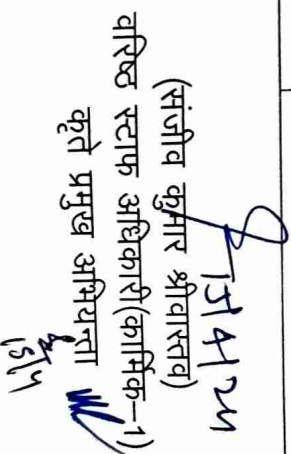 (संजीव कुमार श्रीवास्तव)
वरिष्ठ स्टाफ अधिकारी(कार्मिक–1)
कृते प्रमुख अभियन्ता
15/4